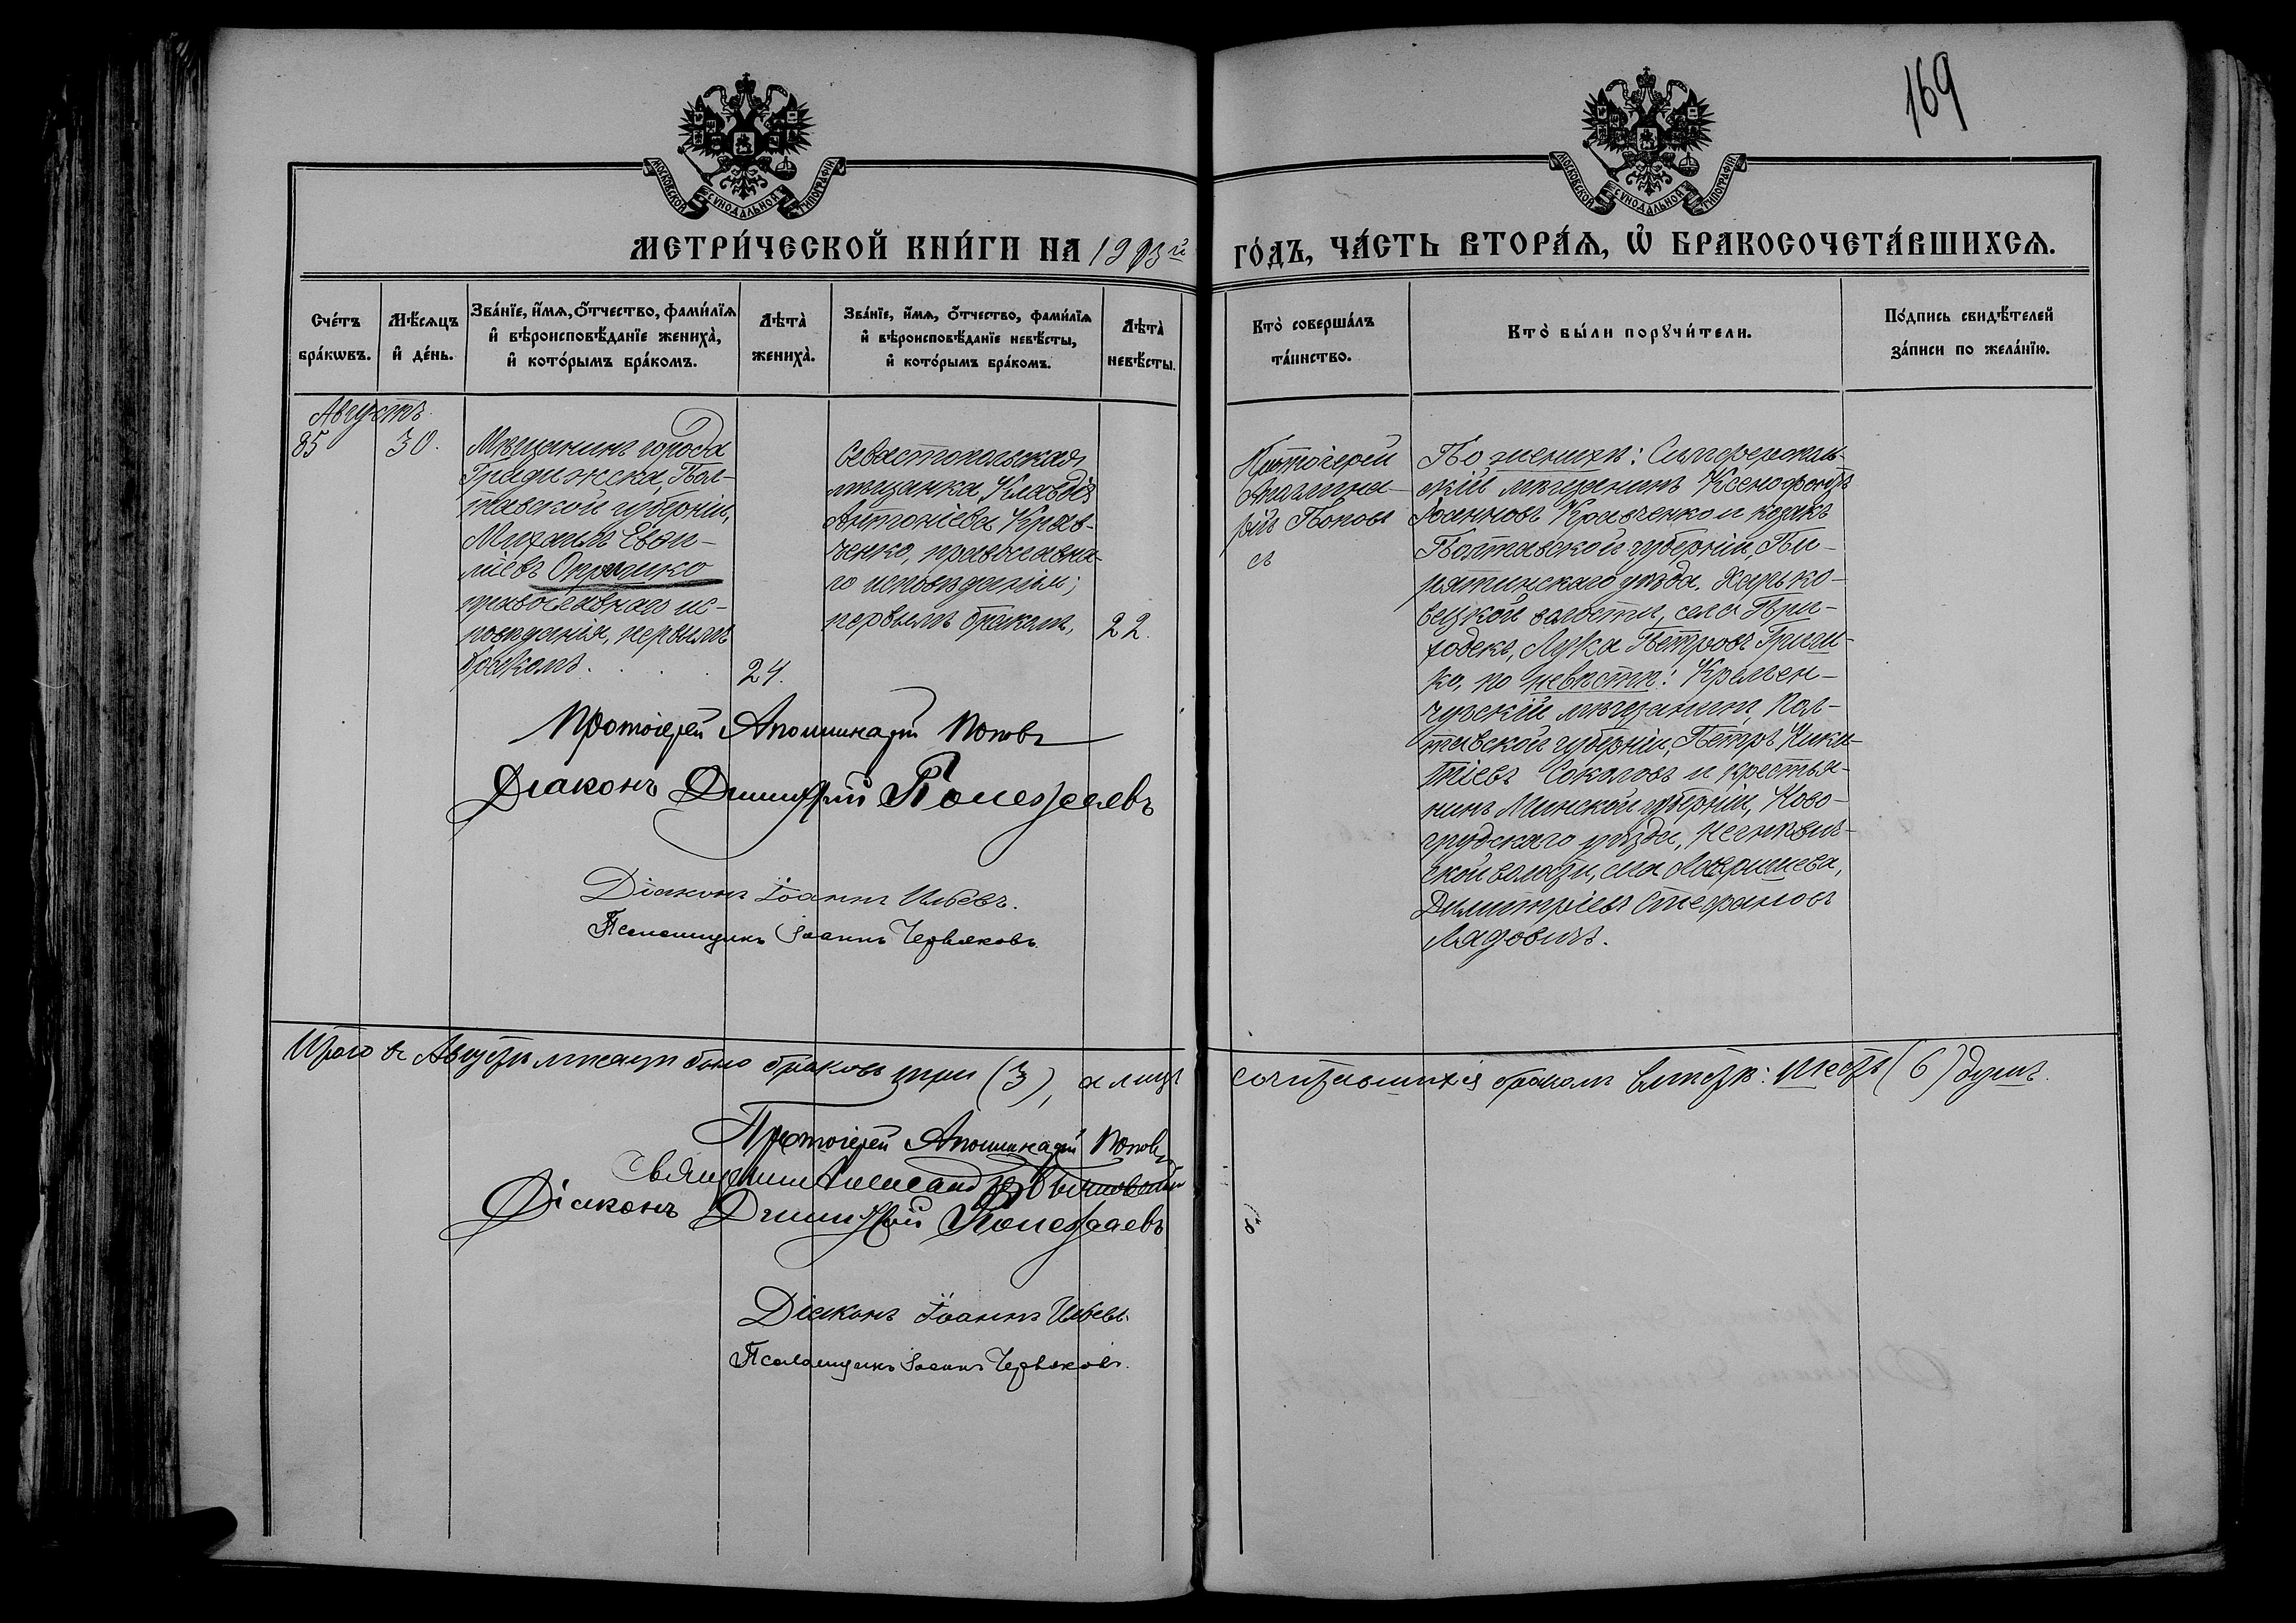 169
МОСКОВСКОЙ СѴНОДАЛЬНОЙ ТИПОГРАФІИ
МОСКОВСКОЙ СѴНОДАЛЬНОЙ ТИПОГРАФІИ
МЕТРИ́ЧЕСКОЙ КНИ́ГИ НА 1903й ГО́ДЪ, ЧА́СТЬ ВТОРА́Ѧ, Ѡ҆ БРАКОСОЧЕТА́ВШИХСѦ.
Сче́тъ
бра́кѡвъ.
Мѣ́сѧцъ
и҆ де́нь.
Зва́нїе, и҆́мѧ, ѻ҆́тчество, фами́лїѧ
и҆ вѣроисповѣ́данїе жениха̀,
и҆ кото́рымъ бра́комъ.
Лѣта̀
жениха̀.
Зва́нїе, и҆́мѧ, ѻ҆́тчество, фами́лїѧ
и҆ вѣроисповѣ́данїе невѣ́сты,
и҆ кото́рымъ бра́комъ.
Лѣта̀
невѣ́сты.
Кто̀ соверша́лъ
та́инство.
Кто̀ бы́ли порꙋчи́тели.
По́дпись свидѣ́телей
за́писи по жела́нїю.
Августъ.
85
30.
Мѣщанинъ города
Градижска, Пол-
тавской губерніи,
Михаилъ Евѳи-
міевъ Опришко
православнаго ис-
повѣданія, первымъ
бракомъ.
24.
Севастопольская
мѣщанка, Клавдія
Антоніева Крав-
ченко, православна-
го исповѣданія;
первымъ бракомъ,
22.
Протоіерей
Аполлина-
рій Поповъ
Съ
По женихѣ: Симферополь-
скій мѣщанинъ Ксенофонтъ
Іоанновъ Кравченко и козакъ
Полтавской губерніи, Пи-
рятинскаго уѣзда, Харько-
вецкой волости, села При-
ходекъ, Лука Петровъ
ко, по невѣстѣ: Кремен-
чугскій мѣщанинъ, Пол-
тавской губерніи, Петръ Ники-
тіевъ Соколовъ и крестья-
нинъ Минской губерніи, Ново-
грудскаго уѣзда,
ской волости, села Лавришева,
Димитрій Стефановъ
Лядовичъ.
Протоіерей Аполлинарій Поповъ
Діаконъ Димитрій Полежаевъ
Діаконъ Іоаннъ
Псаломщикъ Іоаннъ Червяковъ.
Итого въ Августѣ мѣсяцѣ было браковъ три (3), а лицъ сочетавшихся бракомъ вмѣстѣ: шесть (6) душъ.
Протоіерей Аполлинарій Поповъ
Священникъ Александръ
Діаконъ Димитрій Полежаевъ
Діаконъ Іоаннъ
Псаломщикъ Іоаннъ Червяковъ.